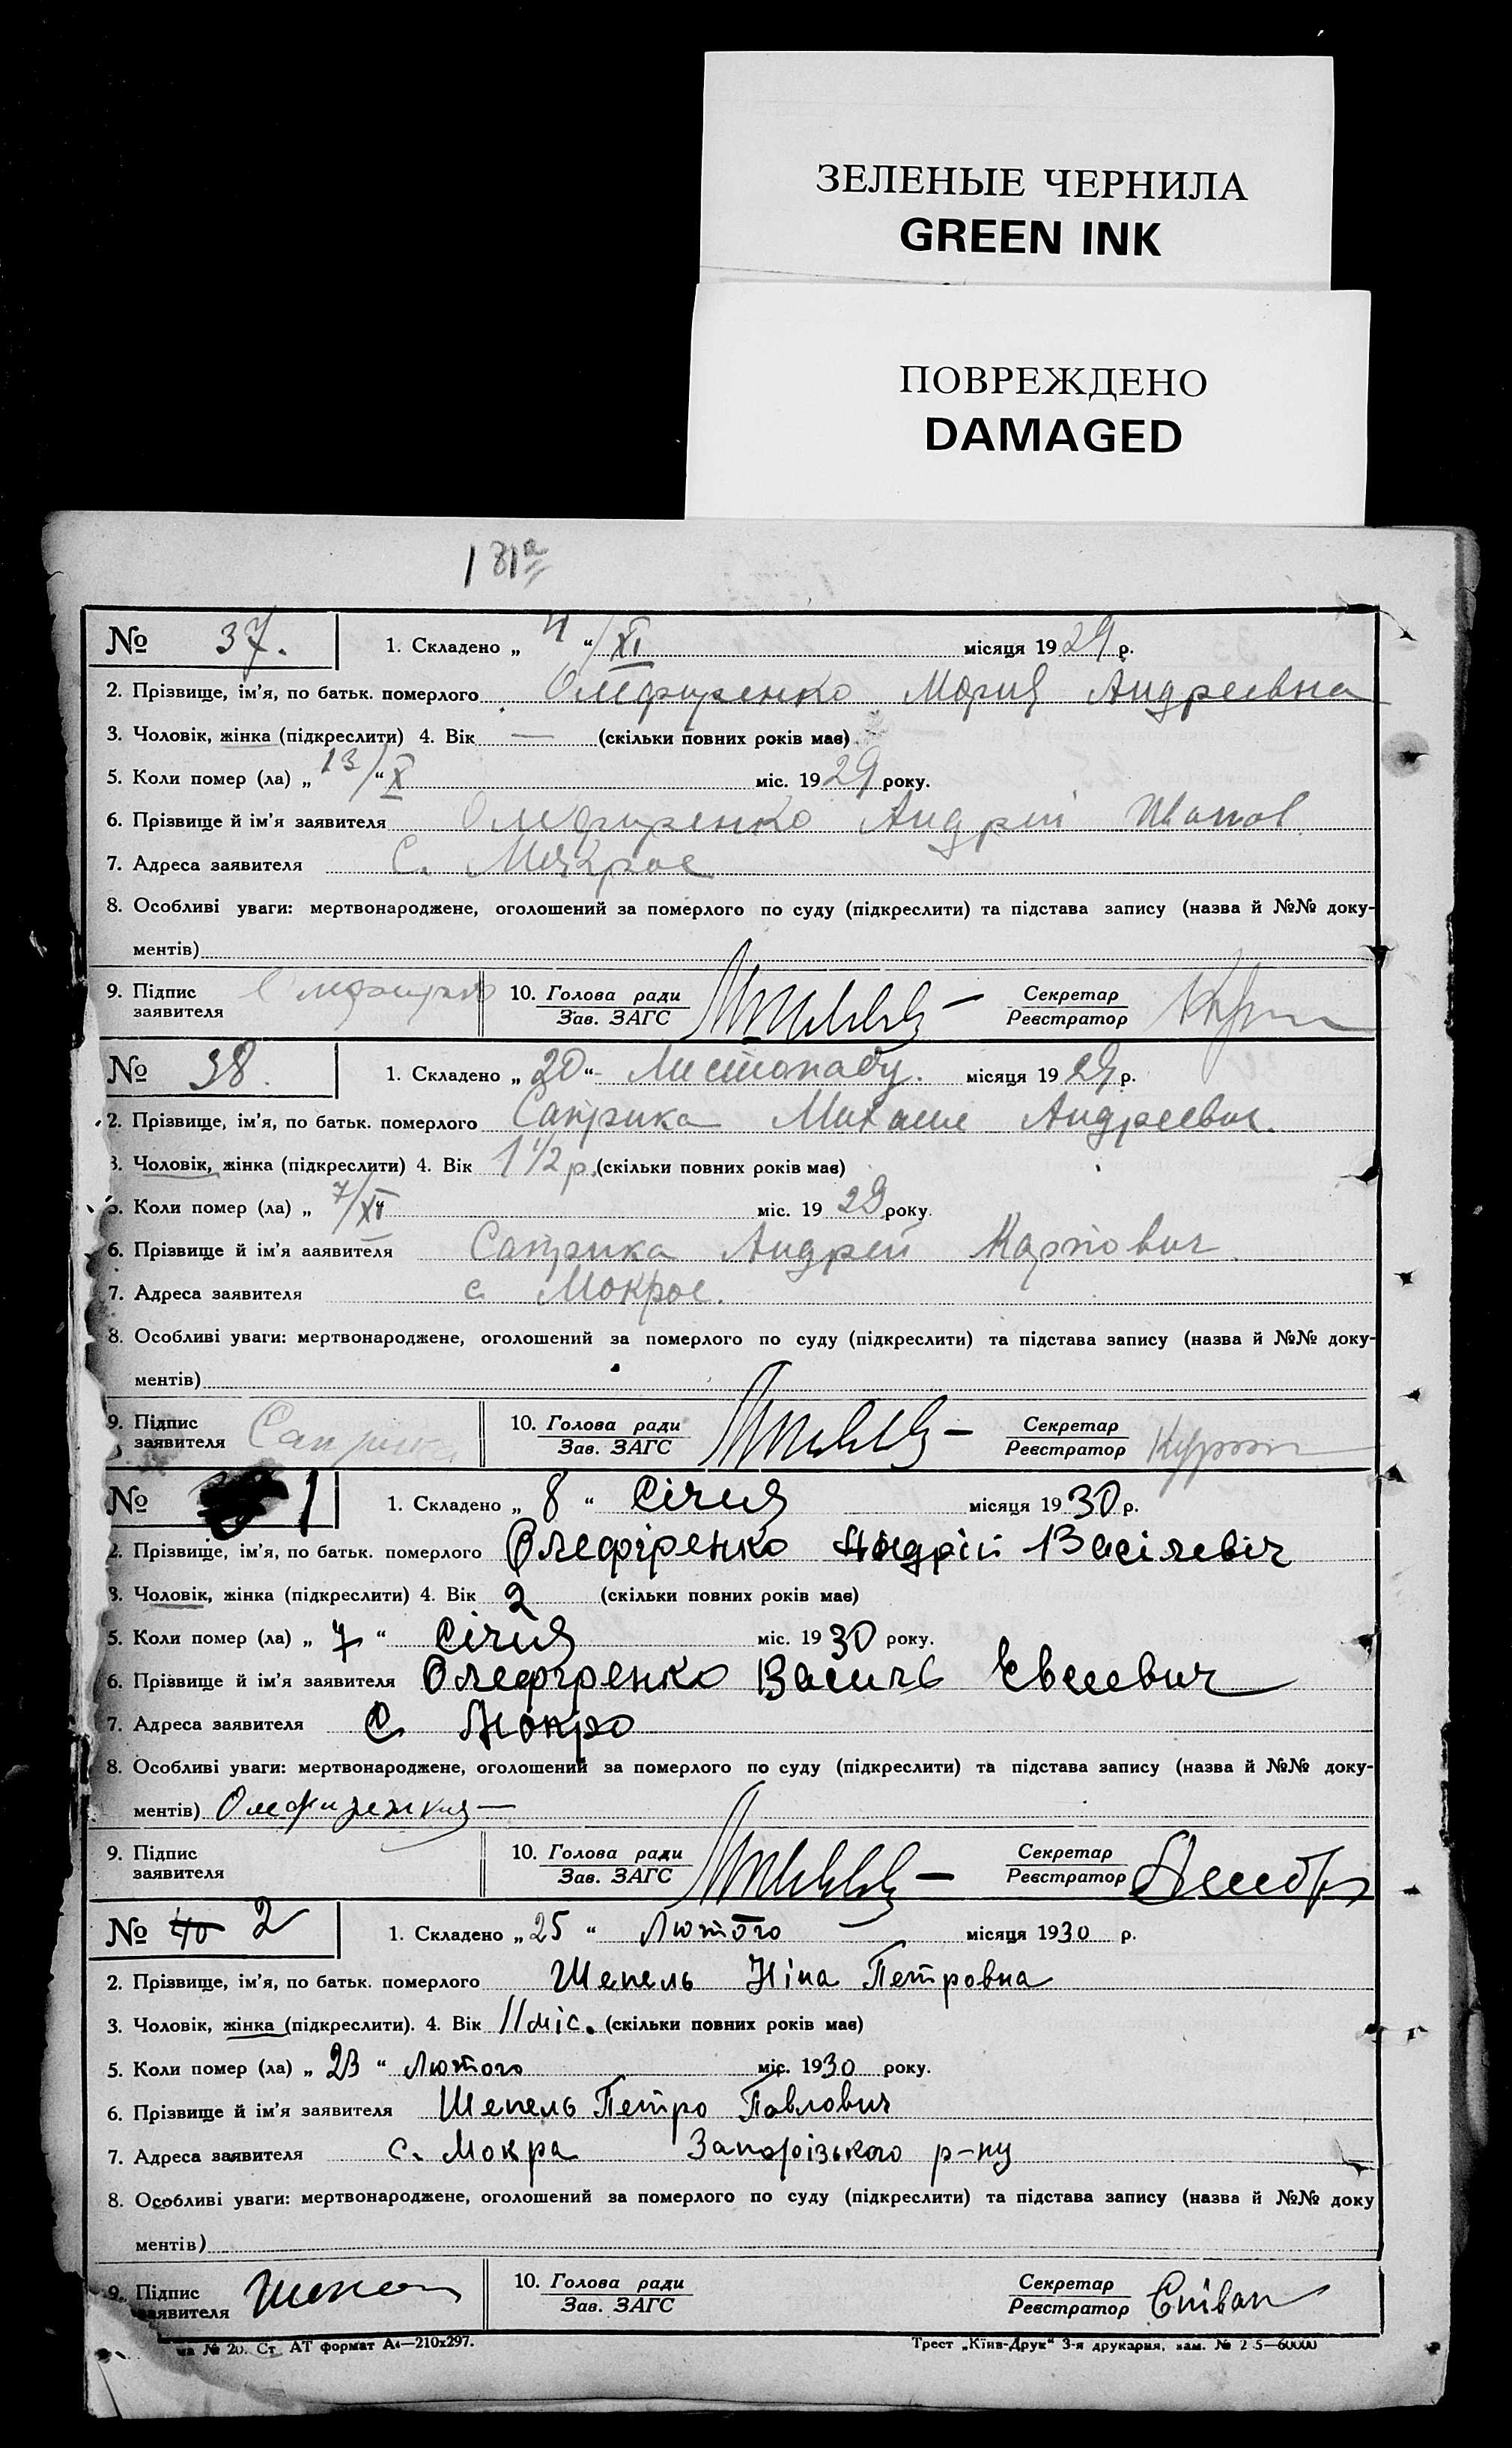 ЗЕЛЕНЫЕ ЧЕРНИЛА
GREEN INK
ПОВРЕЖДЕНО
DAMAGED
181а
№ 37. 1. Складено „ “ /XI місяця 1929 р.
2. Прізвище, ім'я, по батьк. померлого Олефиренко Мария Андреевна
3. Чоловік, жінка (підкреслити) 4. Вік — (скільки повних років має)
5. Коли помер (ла) „ 13/ “ X міс. 1929 року.
6. Прізвище й ім'я заявителя Олефиренко Андрій Иванов
7. Адреса заявителя С. Мокрое
8. Особливі уваги: мертвонароджене, оголошений за померлого по суду (підкреслити) та підстава запису (назва й №№ доку-
ментів)
9. Підпис заявителя 10. Голова ради Зав. ЗАГС Секретар Реєстратор
№ 38. 1. Складено „ 20 “ Листопаду. місяця 1929 р.
2. Прізвище, ім'я, по батьк. померлого Саприка Михаил Андреевич.
3. Чоловік, жінка (підкреслити) 4. Вік 1 1/2 р. (скільки повних років має)
5. Коли помер (ла) „ 7/XI міс. 1929 року.
6. Прізвище й ім'я заявителя Саприка Андрей Карпович.
7. Адреса заявителя с. Мокрое.
8. Особливі уваги: мертвонароджене, оголошений за померлого по суду (підкреслити) та підстава запису (назва й №№ доку-
ментів)
9. Підпис заявителя Саприка 10. Голова ради Зав. ЗАГС Секретар Реєстратор
№ 1 1. Складено „ 8 “ Січня місяця 1930 р.
2. Прізвище, ім'я, по батьк. померлого Олефіренко Андрій Васілевіч
3. Чоловік, жінка (підкреслити) 4. Вік 2 (скільки повних років має)
5. Коли помер (ла) „ 7 “ Січня міс. 1930 року.
6. Прізвище й ім'я заявителя Олефіренко Василь Евсеевич
7. Адреса заявителя С Мокро
8. Особливі уваги: мертвонароджене, оголошений за померлого по суду (підкреслити) та підстава запису (назва й №№ доку-
ментів)
9. Підпис заявителя 10. Голова ради Зав. ЗАГС Секретар Реєстратор
№ 40 2 1. Складено „ 25 “ Лютого місяця 1930 р.
2. Прізвище, ім'я, по батьк. померлого Шепель Ніна Петровна
3. Чоловік, жінка (підкреслити). 4. Вік 11 міс. (скільки повних років має)
5. Коли помер (ла) „ 23 “ Лютого міс. 1930 року.
6. Прізвище й ім'я заявителя Шепель Петро Павлович
7. Адреса заявителя с. Мокра Запорізького р-ну
8. Особливі уваги: мертвонароджене, оголошений за померлого по суду (підкреслити) та підстава запису (назва й №№ доку
ментів)
9. Підпис заявителя Шепель 10. Голова ради Зав. ЗАГС Секретар Реєстратор
№ 20. Ст. АТ формат А4—210х297. Трест „Київ-Друк“ 3-я друкарня, зам. №